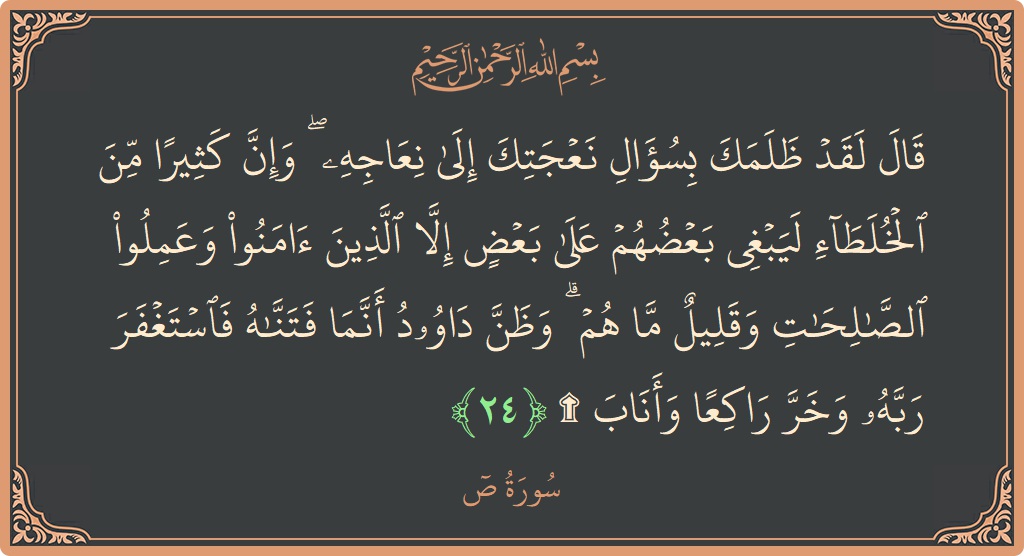 بِسْمِ اللَّهِ الرَّحْمَٰنِ الرَّحِيمِ
قَالَ لَقَدۡ ظَلَمَكَ بِسُؤَالِ نَعۡجَتِكَ إِلَىٰ نِعَاجِهِۦۖ وَإِنَّ كَثِيرٗا مِّنَ
ٱلۡخُلَطَآءِ لَيَبۡغِي بَعۡضُهُمۡ عَلَىٰ بَعۡضٍ إِلَّا ٱلَّذِينَ ءَامَنُواْ وَعَمِلُواْ
ٱلصَّٰلِحَٰتِ وَقَلِيلٞ مَّا هُمۡۗ وَظَنَّ دَاوُۥدُ أَنَّمَا فَتَنَّٰهُ فَٱسۡتَغۡفَرَ
رَبَّهُۥ وَخَرَّ رَاكِعٗا وَأَنَابَ ۩ ﴿٢٤﴾
سُورَةُ صٓ